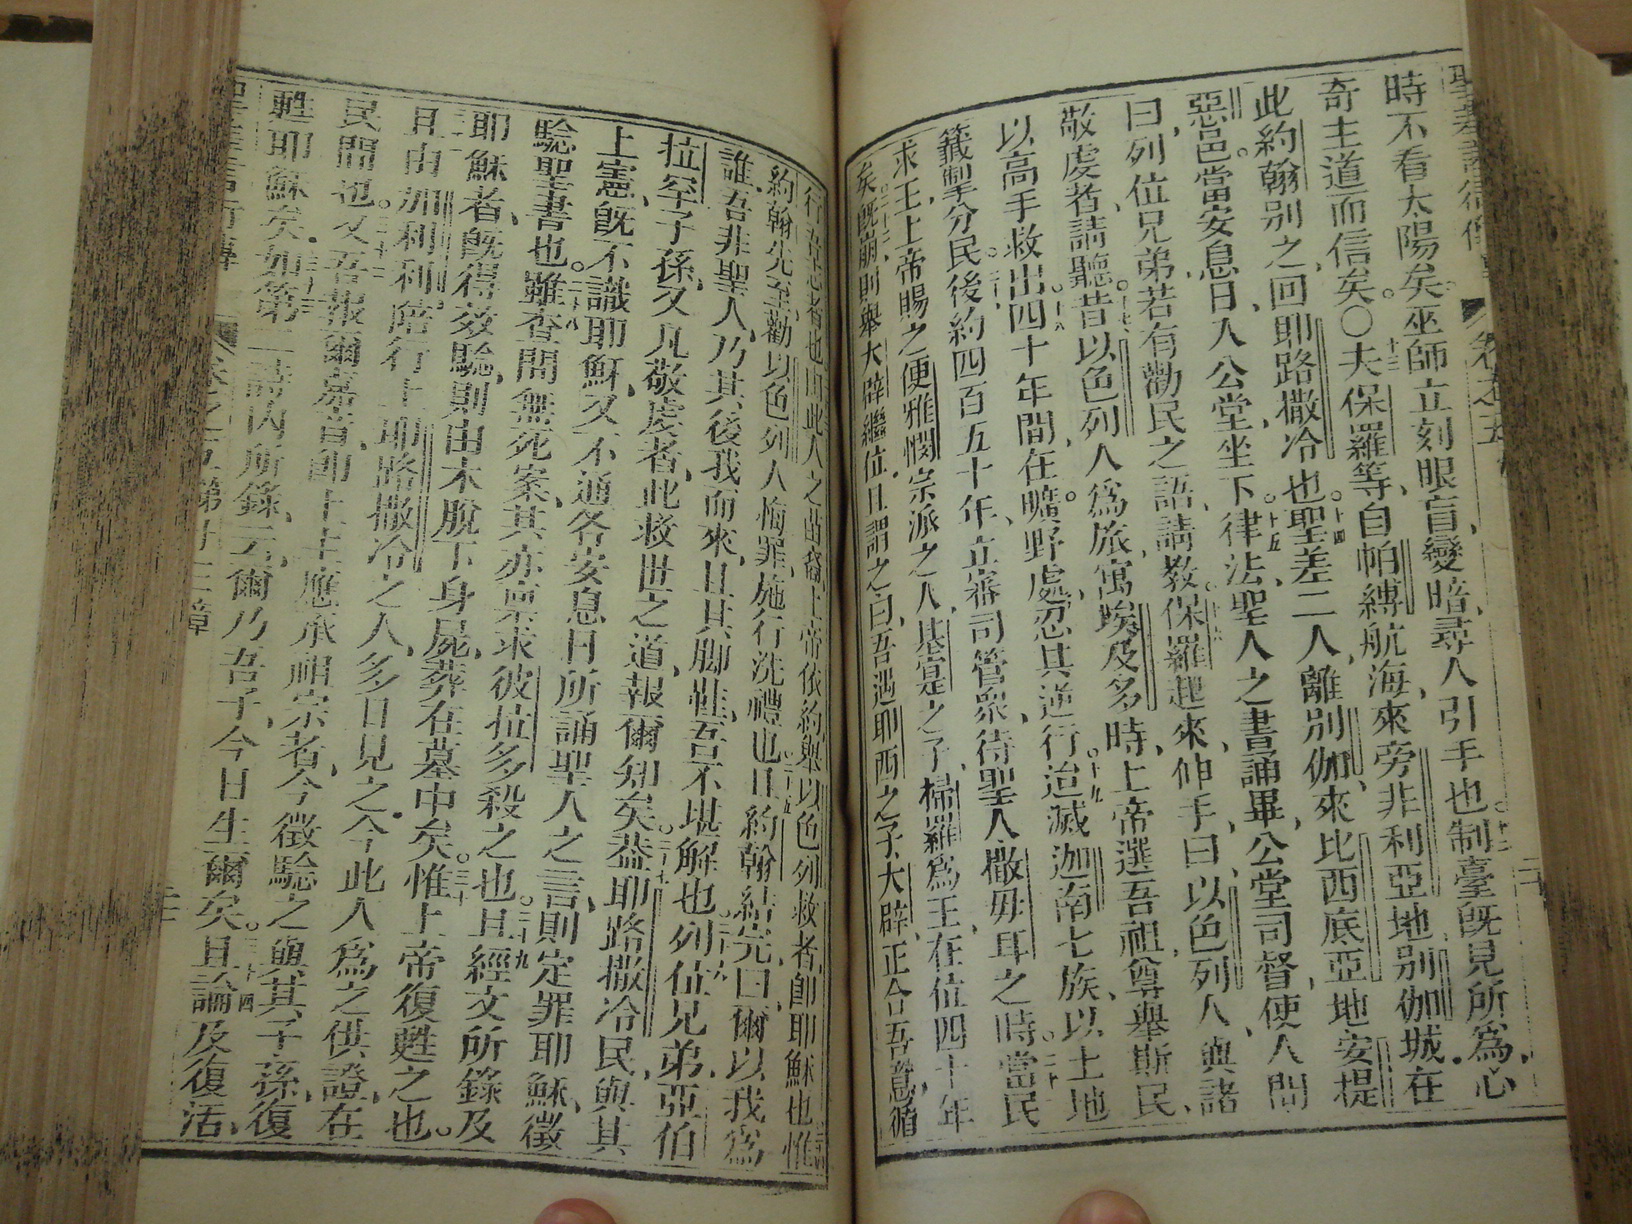 時不看太陽矣巫師立刻眼盲變暗尋人引手也十二制臺既見所為心
奇主道而信矣〇十三夫保羅等自帕縛航海來旁非利亞地別伽城在
此約翰別之回耶路撒冷也十四聖差二人離別伽來比西底亞地安提
惡邑當安息日入公堂坐下十五律法聖人之書誦畢公堂司督使人問
曰列位兄弟若有勸民之語請教十六保羅起來伸手曰以色列人與諸
敬虔者請聽十七昔以色列人為旅寓埃及多時上帝選吾祖尊舉斯民
以高手救出十八四十年間在曠野處忍其逆行十九迨滅迦南七族以土地
籤掣分民二十後約四百五十年立審司管眾待聖人撒母耳之時當民
求王上帝賜之便雅憫宗派之人基寔之子掃羅為王在位四十年
矣二十二既崩則舉大辟繼位且謂之曰吾遇耶西之子大辟正合吾意循
行吾志者也由此人之苗裔上帝依約與以色列救者即耶穌也惟
約翰先至勸以色列人悔罪施行洗禮也二十五且約翰結完曰爾以我為
誰吾非聖人乃其後我而來且其腳鞋吾不堪解也二十六列位兄弟亞伯
拉罕子孫又凡敬虔者此救世之道報爾知矣二十七蓋耶路撒冷民與其
上憲既不識耶穌又不通各安息日所誦聖人之言則定罪耶穌徵
驗聖書也二十八雖查問無死案其亦稟求彼拉多殺之也二十九且經文所錄及
耶穌者既得效驗則由木脫下身屍葬在墓中矣三十惟上帝復甦之也
且由加利利陪行上耶路撒冷之人多日見之今此人為之供證在
民間也又吾報爾嘉音即上主應承祖宗者今徵驗之與其子孫復
甦耶穌矣如第二詩內所錄云爾乃吾子今日生爾矣三十四且論及復活